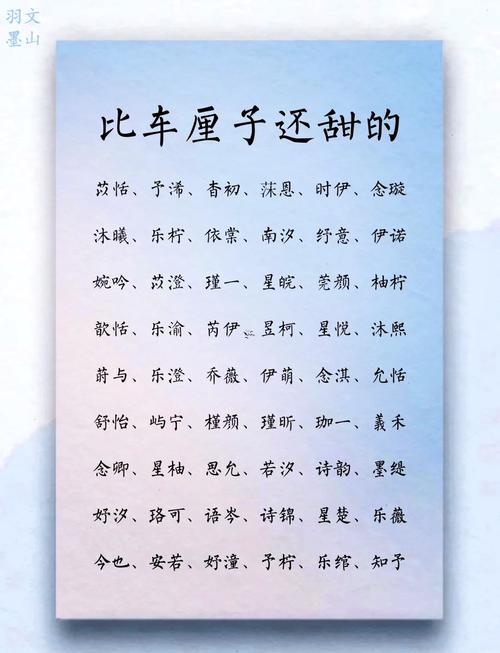 羽文
墨山
比车厘子还甜的
苡恬、予浠、杳初、莯恩、时伊、念璇
沐曦、乐柠、依棠、南汐、纾意、伊诺
婉吟、苡澄、瑾一、星皖、莞颜、柚柠
歆恬、乐渝、芮伊、昱柯、星悦、沐熙
莳与、乐澄、乔薇、伊萌、念淇、允恬
舒怡、屿宁、槿颜、瑾昕、珈一、羲禾
念卿、星柚、思允、若汐、诗韵、墨缇
妤汐、珞可、语岑、诗锦、星楚、乐薇
今也、安若、妤潼、予柠、乐绾、知予